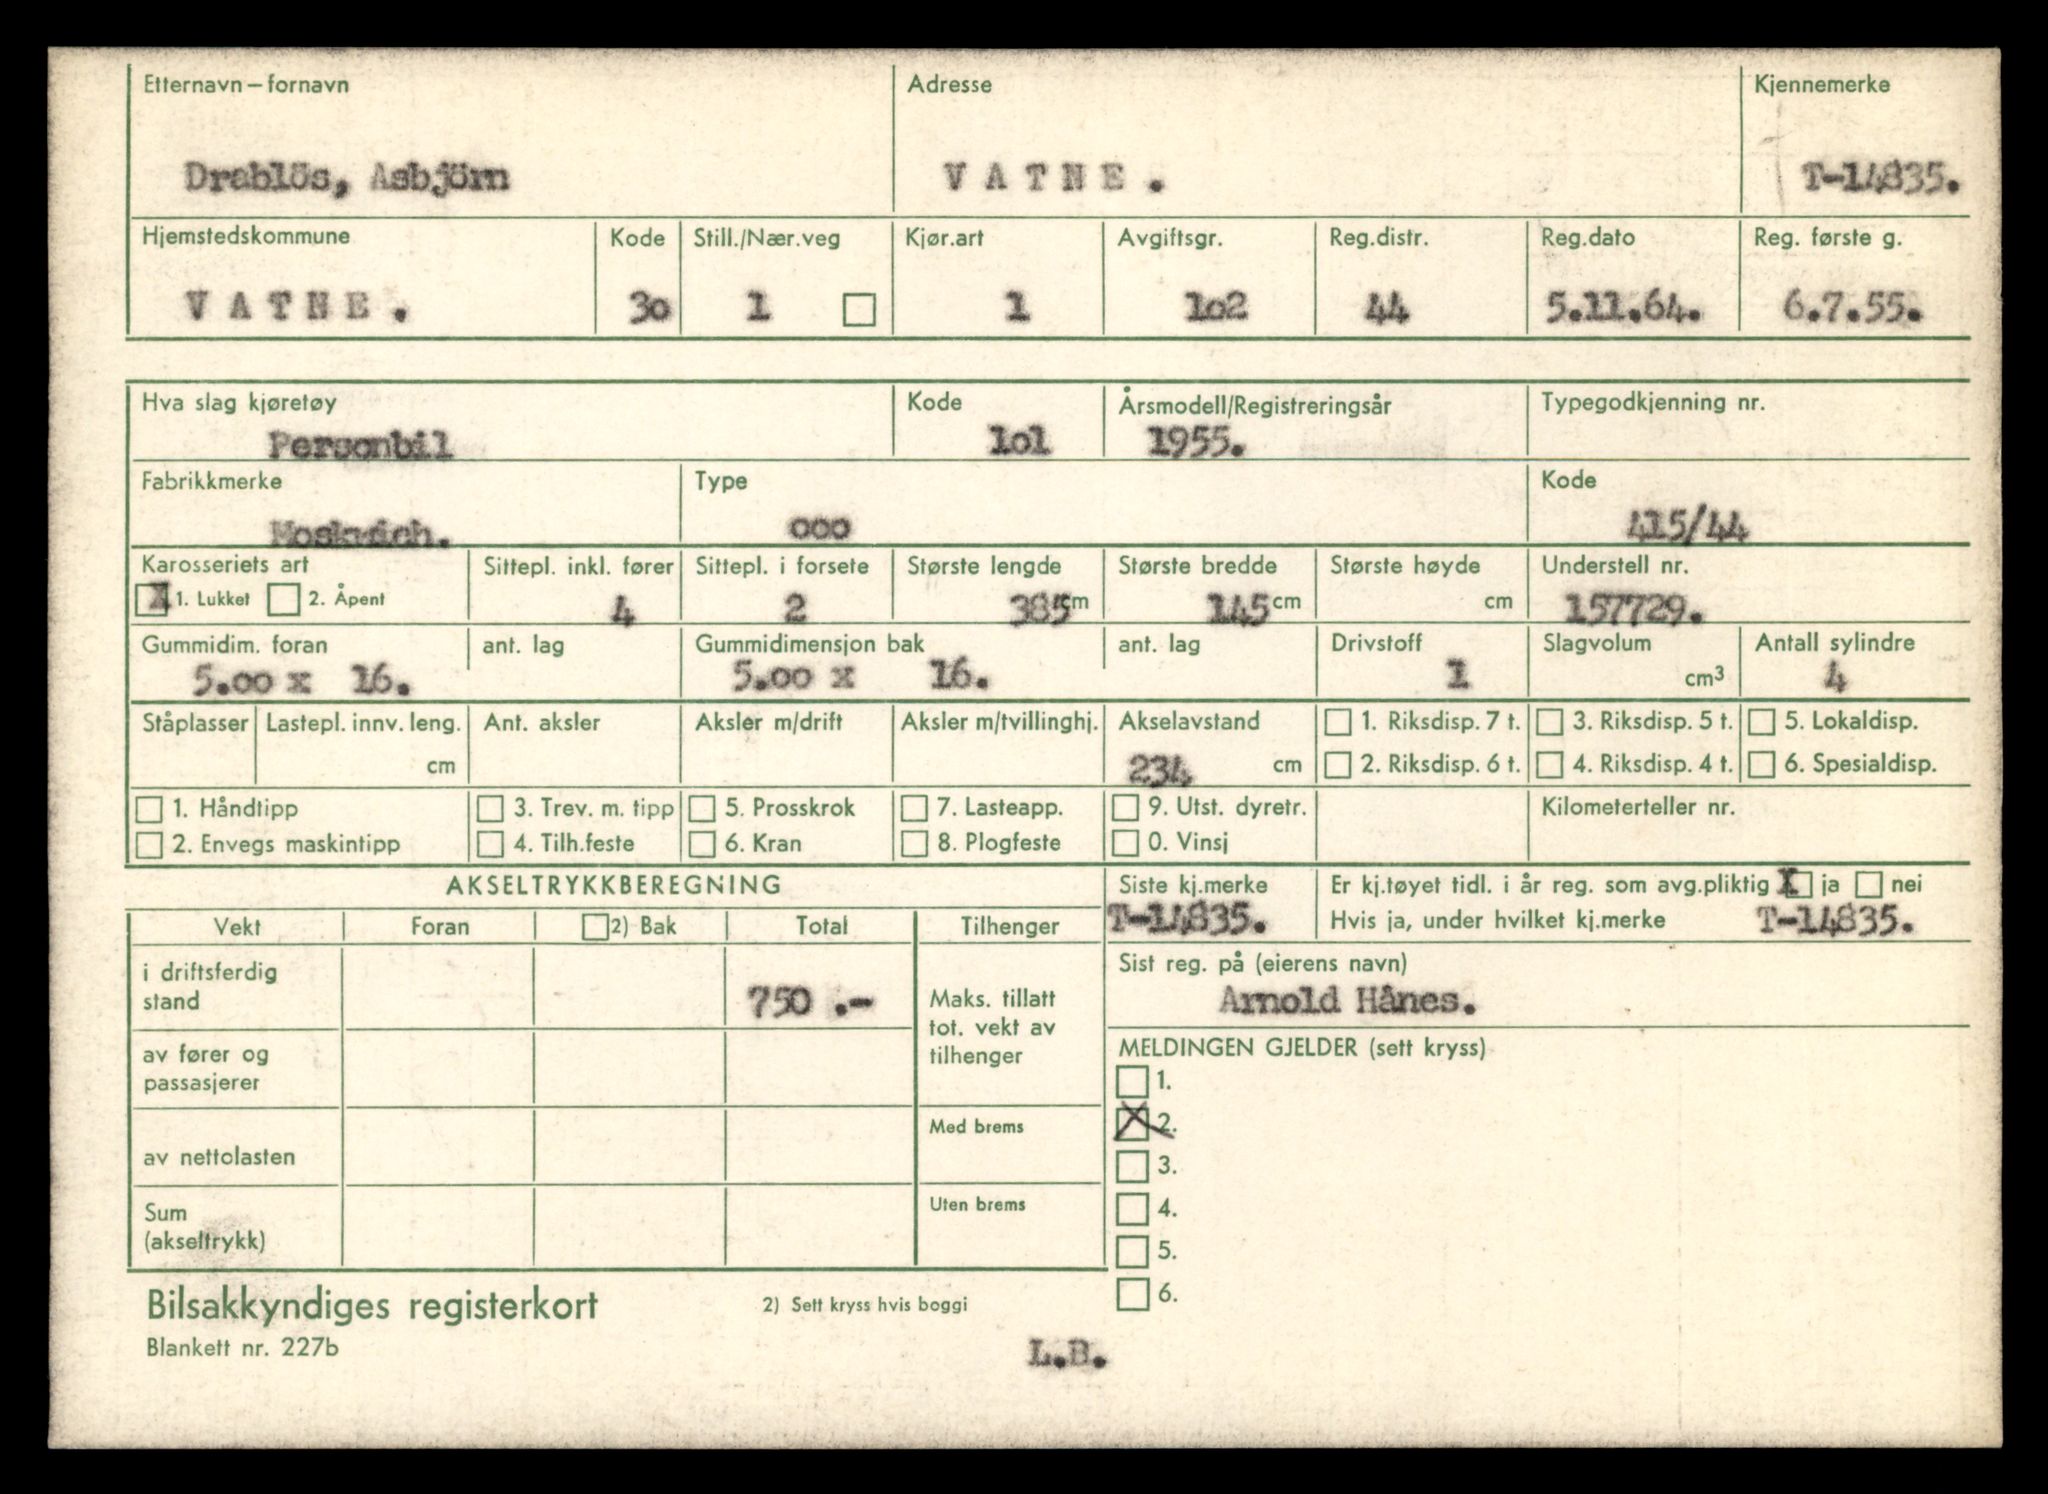 Etternavn – fornavn Adresse Kjennemerke
Drablös, Asbjörn V A T N E . T-14835.
Hjemstedskommune Kode Still./Nær.veg Kjør.art Avgiftsgr. Reg.distr. Reg.dato Reg. første g.
V A T N E . 3o 1 1 1o2 44 5.11.64. 6.7.55.
Hva slag kjøretøy Kode Årsmodell/Registreringsår Typegodkjenning nr.
Personbil 1o1 1955.
Fabrikkmerke Type Kode
Moskvich. ooo 415/44
Karosseriets art Sittepl. inkl. fører Sittepl. i forsete Største lengde Største bredde Største høyde Understell nr.
X 1. Lukket 2. Åpent 4 2 385 cm 145 cm cm 157729.
Gummidim. foran ant. lag Gummidimensjon bak ant. lag Drivstoff Slagvolum Antall sylindre
5.oo x 16. 5.oo x 16. 1 cm3 4
Ståplasser Lastepl. innv. leng. Ant. aksler Aksler m/drift Aksler m/tvillinghj. Akselavstand 1. Riksdisp. 7 t. 3. Riksdisp. 5 t. 5. Lokaldisp.
cm 234 cm 2. Riksdisp. 6 t. 4. Riksdisp. 4 t. 6. Spesialdisp.
1. Håndtipp 3. Trev. m. tipp 5. Prosskrok 7. Lasteapp. 9. Utst. dyretr. Kilometerteller nr.
2. Envegs maskintipp 4. Tilh.feste 6. Kran 8. Plogfeste 0. Vinsj
AKSELTRYKKBEREGNING Siste kj.merke Er kj.tøyet tidl. i år reg. som avg.pliktig X ja nei
Vekt Foran 2) Bak Total Tilhenger T-14835. Hvis ja, under hvilket kj.merke T-14835.
i driftsferdig Sist reg. på (eierens navn)
stand 750 .- Maks. tillatt Arnold Hånes.
tot. vekt av
av fører og tilhenger MELDINGEN GJELDER (sett kryss)
passasjerer 1.
Med brems X 2.
av nettolasten 3.
Sum Uten brems 4.
(akseltrykk) 5.
Bilsakkyndiges registerkort 2) Sett kryss hvis boggi 6.
Blankett nr. 227b L.B.